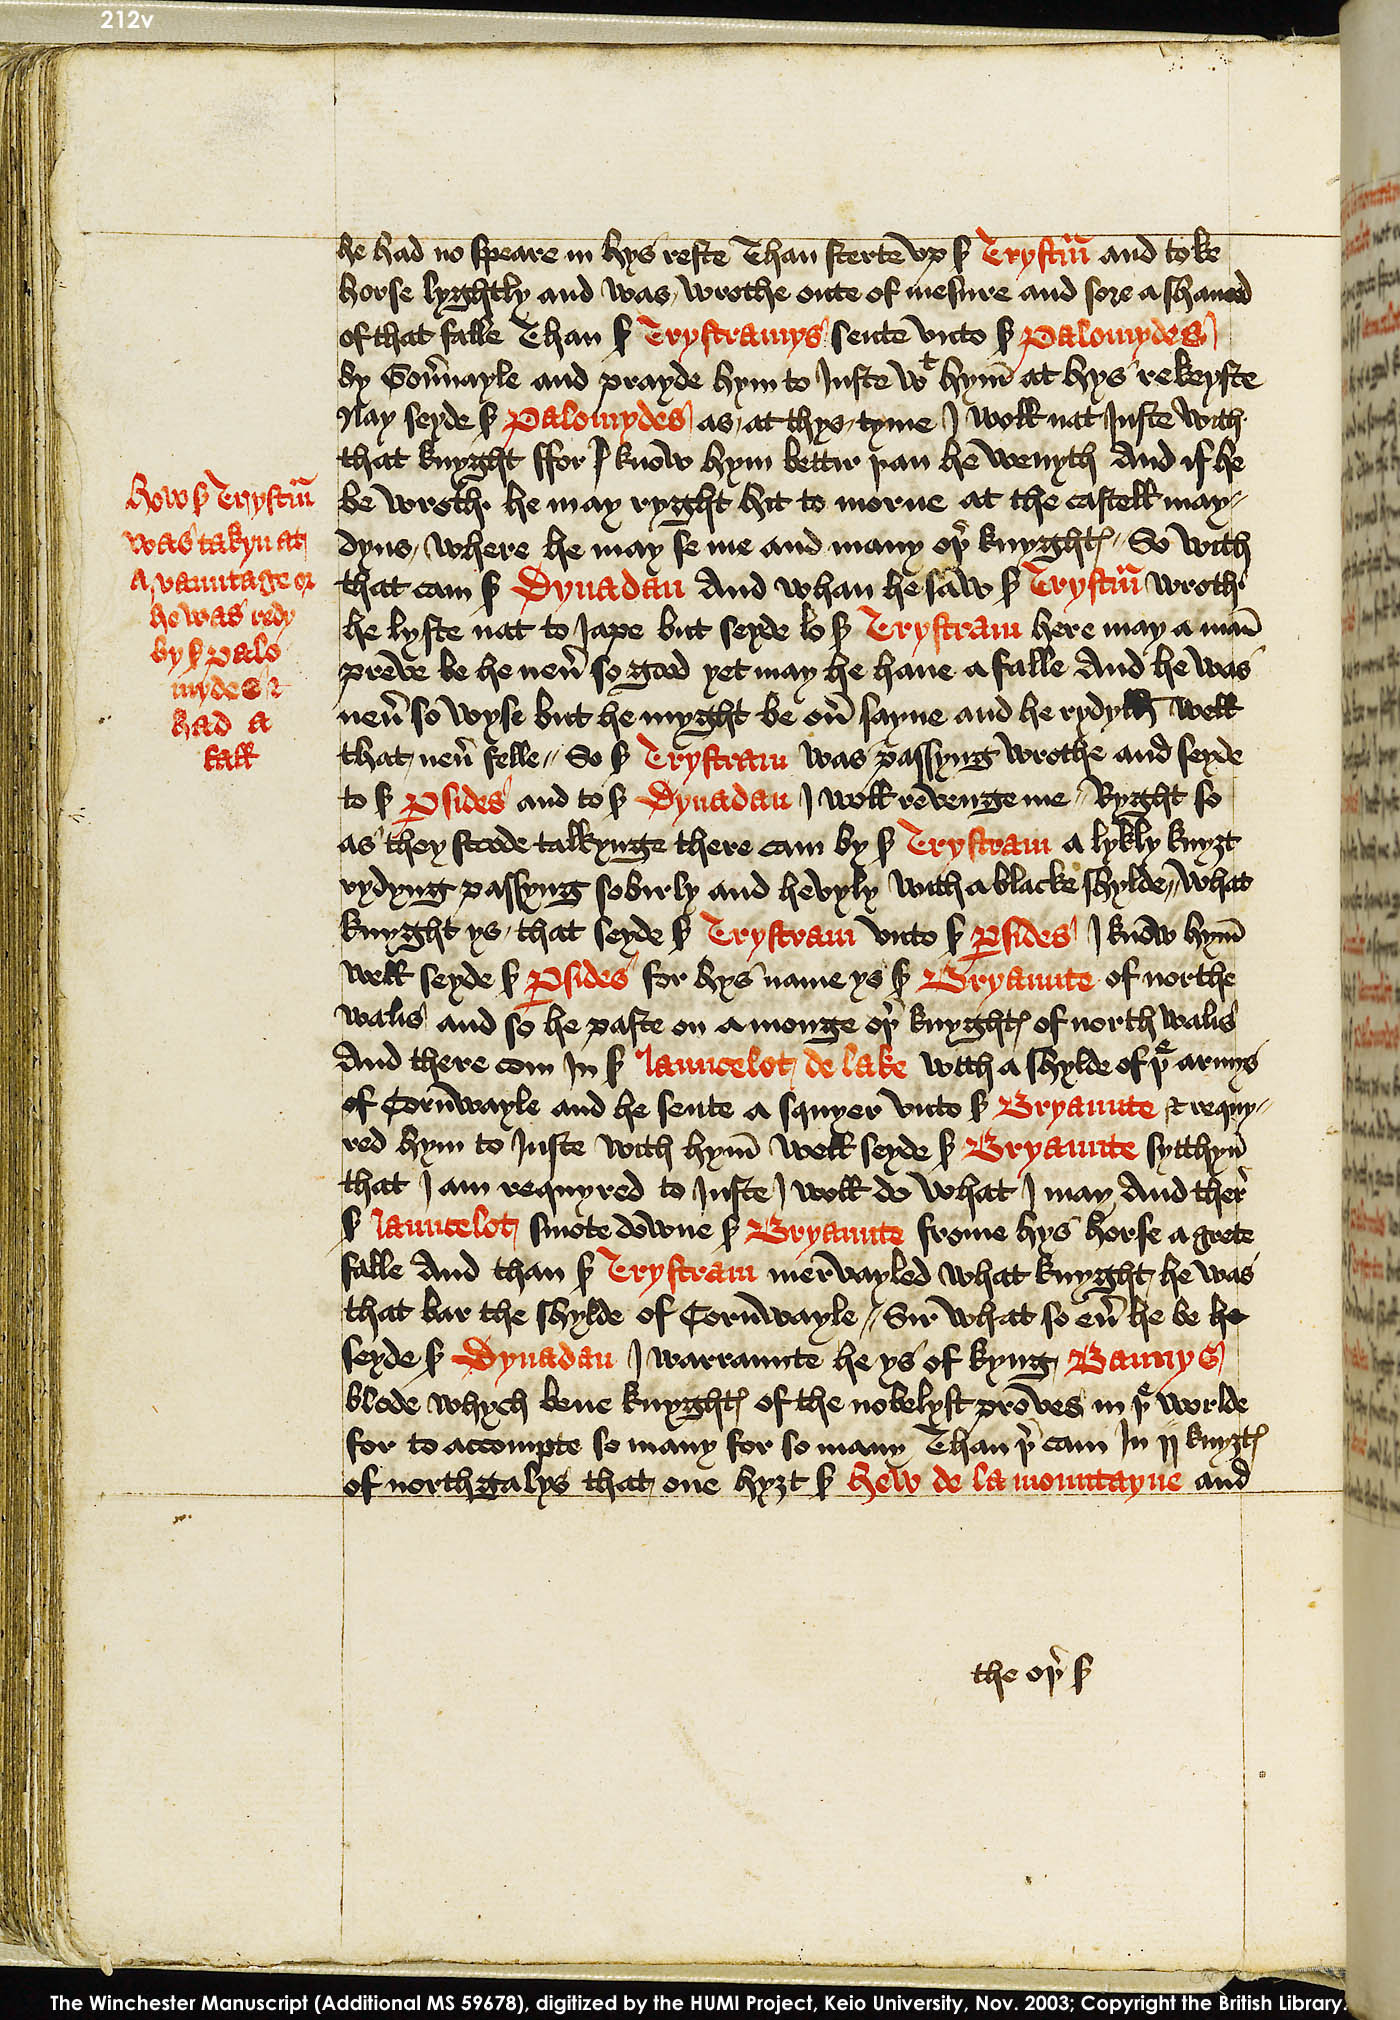 212v
he had no speare in hys reste Than sterte vp sͬ Trystrͣm and toke
horse lyghtly and was wrothe oute of mesure and sore a shamed
of that falle Than sͬ Trystramys sente vnto sͬ Palomydes
by Gou̾nayle and prayde hym to Juste wͭ hym̅ at hys rekeyste
Nay seyde sͬ Palomydes as at thys tyme I woll nat Juste with
that knyght ffor I know hym bettir þan he wenyth And if he
be wroth he may ryght hit to morne at the castell may
dyns where he may se me and many oþ̾ knyghtꝭ So with
that cam sͬ Dynadan And whan he saw sͬ Trystrͣm wroth
he lyste nat to Jape but seyde lo sͬ Trystram here may a man̅
preve be he neu̾ so good yet may he haue a falle And he was
neu̾ so wyse but he myght be ou̾ sayne and he rydyth well
that neu̾ felle So sͬ Trystram was passyng wrothe and seyde
to sͬ ꝑsides and to sͬ Dynadan I woll revenge me Ryght so
as they stoode talkynge there cam by sͬ Trystram a lykly knyȝt
rydyng passyng sobirly and hevyly with a blacke shylde what
knyght ys that seyde sͬ Trystram vnto sͬ ꝑsides I know hym̅
well seyde sͬ ꝑsides for hys name ys sͬ Bryaunte of northe
walis and so he paste on a monge oþ̾ knyghtꝭ of north walis
And there com In sͬ launcelot de lake with a shylde of þͤ armys
of Corn̅wayle and he sente a squyer vnto sͬ Bryaunte & requy
red hym to Juste with hym̅ well seyde sͬ Bryaunte sytthyn̅
that I am requyred to Juste I woll do what I may And ther̾
sͬ launcelot smote downe sͬ Bryaunte frome hys horse a grete
falle And than sͬ Trystram mervayled what knyght he was
that bar the shylde of Corn̅wayle Sir what so eu̾ he be he
seyde sͬ Dynadan I warraunte he ys of kyng Bannys
blode whych bene knyghtꝭ of the nobelyst proves in þͤ worlde
for to accompte so many for so many Than þ̾ cam In ij knyȝtꝭ
of northgalys that one hyȝt sͬ hew de la mountayne and
how sͬ Trystrͣm
was takyn at
a vauntage or
he was redy
by sͬ palo
mydes &
had a
fall
the oþ̾ sͬ
The Winchester Manuscript (Additional MS 59678), digitized by the HUMI Project, Keio University, Nov. 2003; Copyright the British Library.